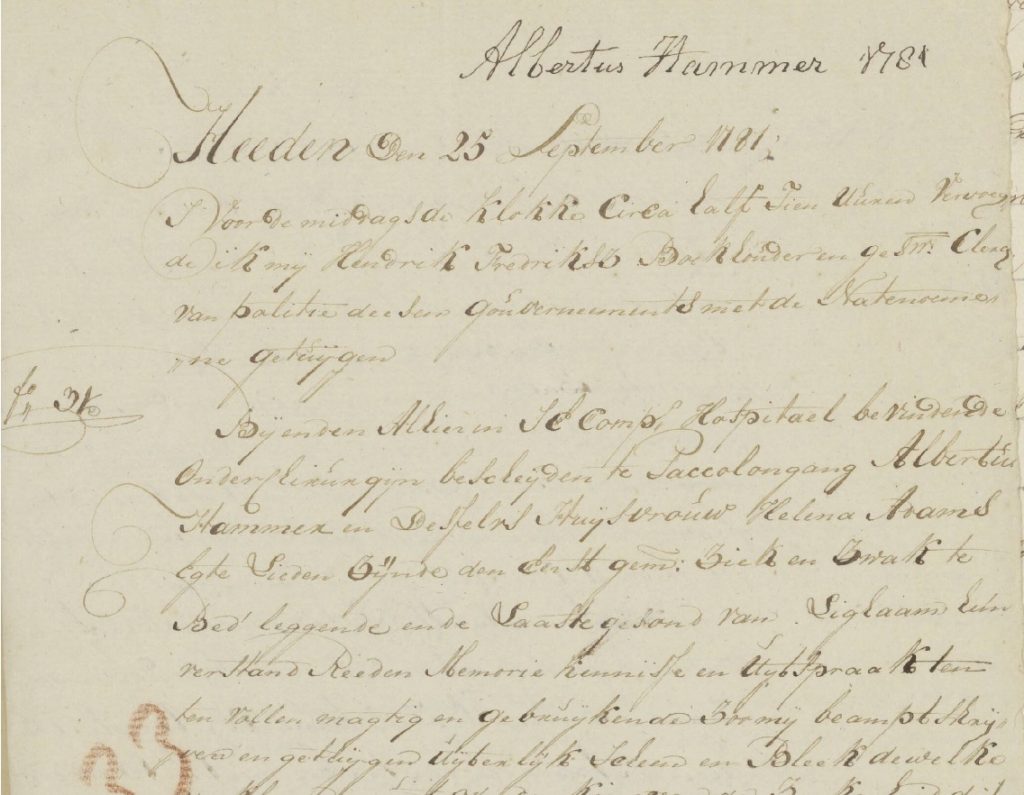 Albertus Hammer 1781
Heeden Den 25 September 1781
Voor de middags de Klokke Circa half Tien Uuren Vervoeg
de ik mij Hendrik Fredriksz Boekhouder en gesw: Clercq
van politie deesen gouvernements met de Natenoeme
ne getuijgen
Bij en den Alhier in SE Comps Hospitael bevindende
Onder Chirurgijn bescheijden te Paccolongang Albertus
Hammer en Desselfs Huijsvrouw Helena Adams
Egte Lieden Zijnde den Eerst gem: Ziek en Zwak te
Bed leggende ende Laaste gesond van Lighaam hun
verstand Reeden Memorie kennisse en Uijtspraak ten
ten vollen magtig en gebruijkende Zoo mij beamptschrij
ver en getuijgen Uijterlijk Scheen en Bleek dewelke
33